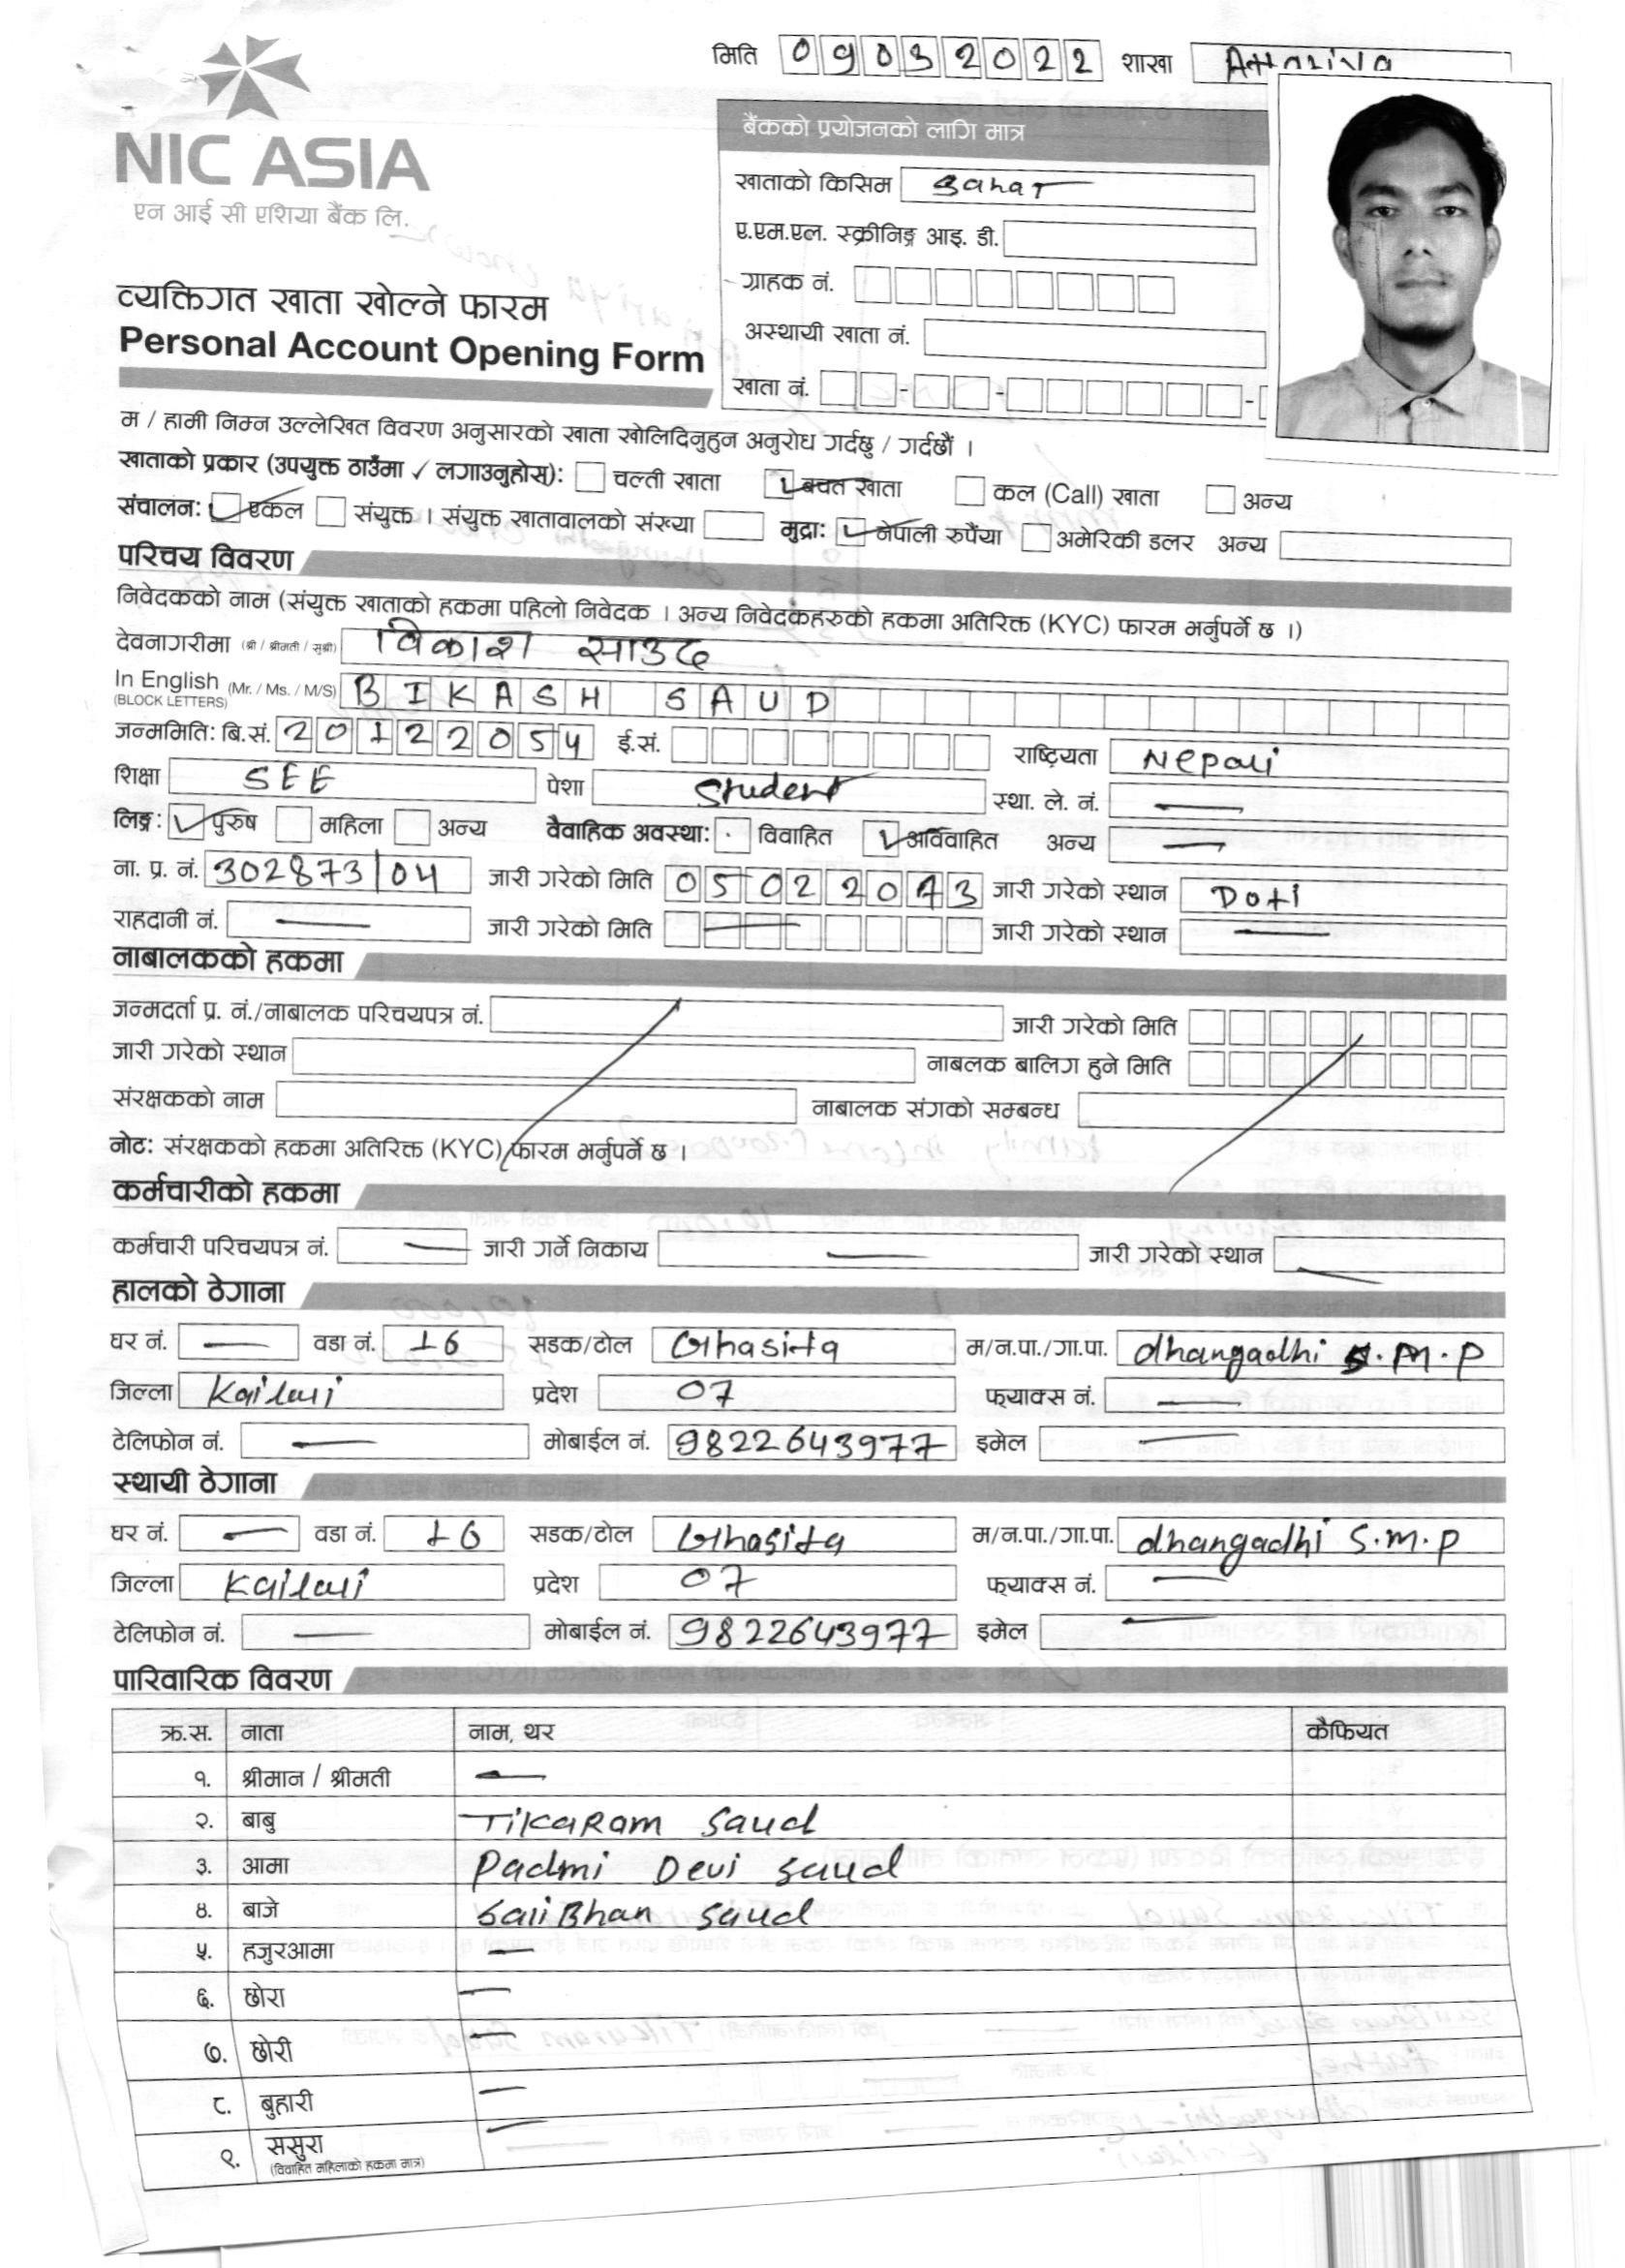 मिति 09032022 शाखा
NIC ASIA
एन आई सी एशिया बैंक लि.
बैंकको प्रयोजनको लागि मात्र
खाताको किसिम
ए.एम.एल. स्क्रीनिङ्ग आइ. डी.
ग्राहक नं.
अस्थायी खाता नं.
खाता नं.
व्यक्तिगत खाता खोल्ने फारम
Personal Account Opening Form
म / हामी निम्न उल्लेखित विवरण अनुसारको खाता खोलिदिनुहुन अनुरोध गर्दछु / गर्दछौं ।
खाताको प्रकार (उपयुक्त ठाउँमा ✓ लगाउनुहोस्): चल्ती खाता बचत खाता कल (Call) खाता अन्य
संचालन: एकल संयुक्त । संयुक्त खातावालको संख्या मुद्रा: नेपाली रुपैंया अमेरिकी डलर अन्य
परिचय विवरण
निवेदकको नाम (संयुक्त खाताको हकमा पहिलो निवेदक । अन्य निवेदकहरुको हकमा अतिरिक्त (KYC) फारम भर्नुपर्ने छ ।)
देवनागरीमा (श्री / श्रीमती / सुश्री) विकाश साउद
In English (Mr. / Ms. / M/S) BIKASH SAUD
(BLOCK LETTERS)
जन्ममिति: बि.सं. 20122054 ई.सं. राष्ट्रियता Nepali
शिक्षा SEE पेशा Student स्था. ले. नं. —
लिङ्ग: पुरुष महिला अन्य वैवाहिक अवस्था: विवाहित अविवाहित अन्य —
ना. प्र. नं. 302873/04 जारी गरेको मिति 05022073 जारी गरेको स्थान Doti
राहदानी नं. — जारी गरेको मिति — जारी गरेको स्थान —
नाबालकको हकमा
जन्मदर्ता प्र. नं./नाबालक परिचयपत्र नं. जारी गरेको मिति
जारी गरेको स्थान नाबलक बालिग हुने मिति
संरक्षकको नाम नाबालक संगको सम्बन्ध
नोट: संरक्षकको हकमा अतिरिक्त (KYC) फारम भर्नुपर्ने छ ।
कर्मचारीको हकमा
कर्मचारी परिचयपत्र नं. — जारी गर्ने निकाय — जारी गरेको स्थान —
हालको ठेगाना
घर नं. — वडा नं. 16 सडक/टोल Ghasita म/न.पा./गा.पा. dhangadhi S.M.P
जिल्ला Kailali प्रदेश 07 फ्याक्स नं. —
टेलिफोन नं. — मोबाईल नं. 9822643977 इमेल —
स्थायी ठेगाना
घर नं. — वडा नं. 16 सडक/टोल Ghasita म/न.पा./गा.पा. dhangadhi S.M.P
जिल्ला Kailali प्रदेश 07 फ्याक्स नं. —
टेलिफोन नं. — मोबाईल नं. 9822643977 इमेल —
पारिवारिक विवरण
क्र.स. नाता नाम, थर कैफियत
१. श्रीमान / श्रीमती —
२. बाबु Tikaram Saud
३. आमा Padmi Devi Saud
४. बाजे Saud
५. हजुरआमा —
६. छोरा —
७. छोरी —
८. बुहारी —
९. ससुरा —
(विवाहित महिलाको हकमा मात्र)